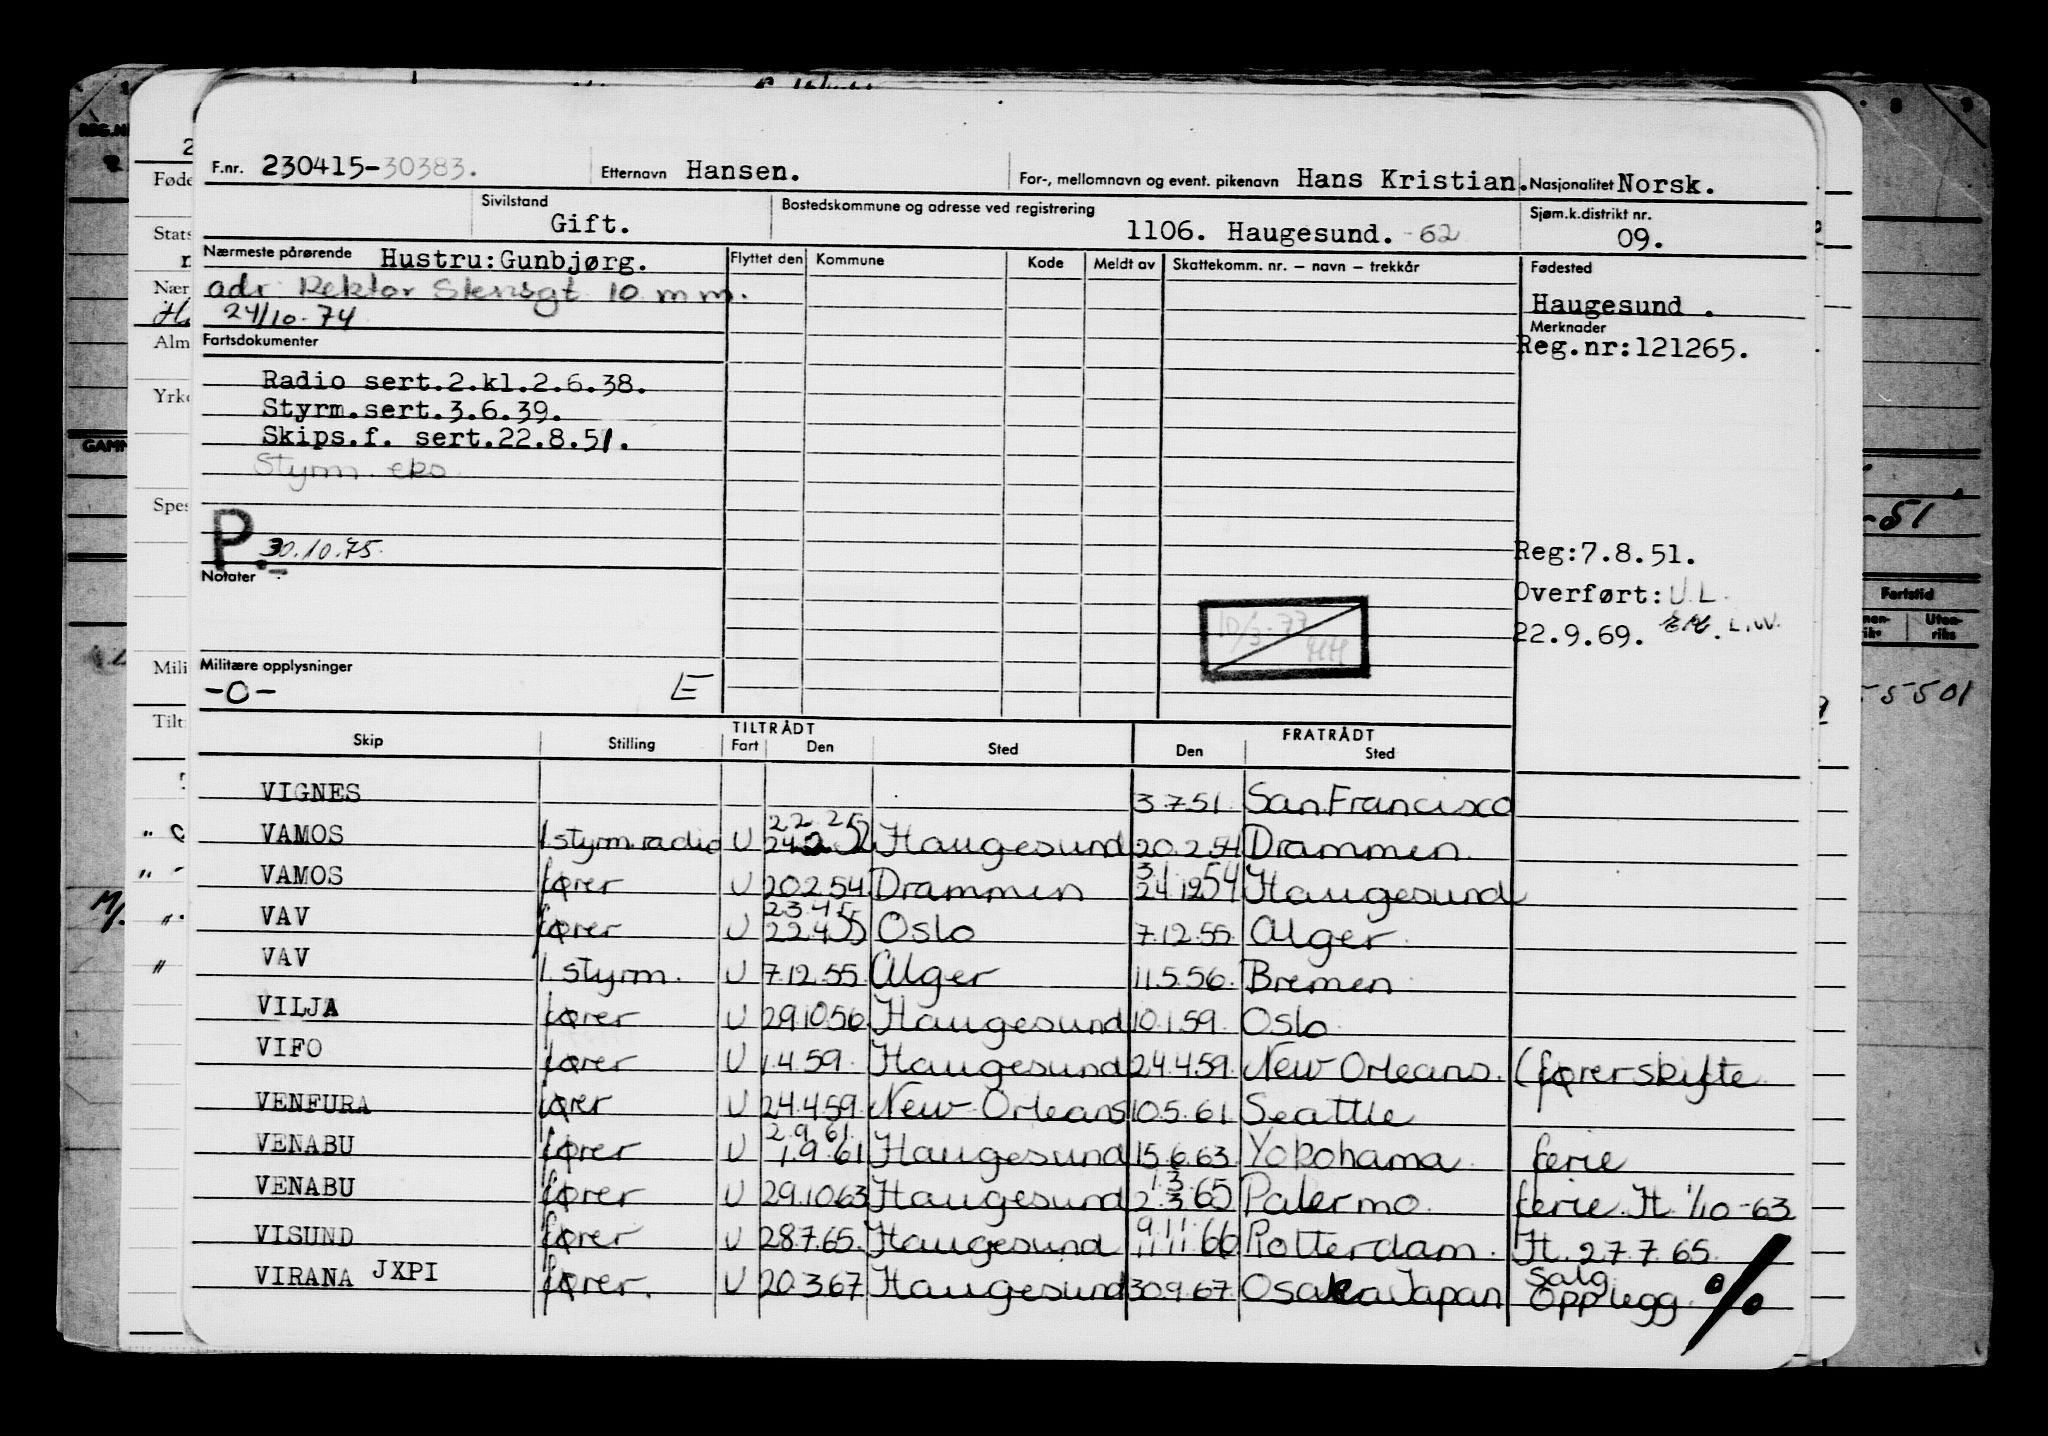 F.nr. 230415-30383. Etternavn Hansen. For-, mellomnavn og event. pikenavn Hans Kristian. Nasjonalitet Norsk.
Sivilstand Gift. Bostedskommune og adresse ved registrering 1106. Haugesund. -62 Sjøm.k.distrikt nr. 09.
Nærmeste pårørende Hustru:Gunbjørg. Flyttet den Kommune Kode Meldt av Skattekomm. nr. – navn – trekkår Fødested
adr Rektor Stensgt 10 m m. Haugesund .
24/10-74 Merknader
Fartsdokumenter Reg.nr:121265.
Radio sert.2.kl.2.6.38.
Styrm.sert.3.6.39.
Skips.f. sert.22.8.51.
Styrm eks
P. 30.10.75. Reg:7.8.51.
Notater Overført: U.L.
10/3-77 HH 22.9.69. L.W.
Militære opplysninger
-0- E
TILTRÅDT FRATRÅDT
Skip Stilling Fart Den Sted Den Sted
VIGNES 3.7.51. San.Francisco
VAMOS 1 styrm radio U 22.2.52 24.2.52 Haugesund 20.2.54 Drammen.
VAMOS fører U 20.2.54. Drammen 31 24.12.54 Haugesund
VAV fører U 23.4.55 22.4.55 Oslo 7.12.55. Alger.
VAV 1. styrm. U 7.12.55. Alger 11.5.56. Bremen
VILJA fører U 29.10.56. Haugesund 10.1.59. Oslo
VIFO fører U 1.4.59. Haugesund 24.4.59. New Orleans. (førerskifte
VENFURA fører U 24.4.59. New Orleans 10.5.61. Seattle
VENABU fører U 2.9.61. 1.9.61 Haugesund 15.6.63. Yokohama ferie
VENABU fører U 29.10.63 Haugesund 1.3. 2.3.65 Palermo. ferie. H. 1/10-63
VISUND fører U 28.7.65. Haugesund 9.11. 11.11.66 Rotterdam. H. 27.7.65.
VIRANA JXPI fører. U 20.3.67 Haugesund 30.9.67. Osaka Japan salg Opplegg. %
REG.N
Føde
Stats
Nær
Alm
Yrke
GAMM
Spes
Mili
Tilt
8 9
-51
Fartstid
Uten-
riks
5501